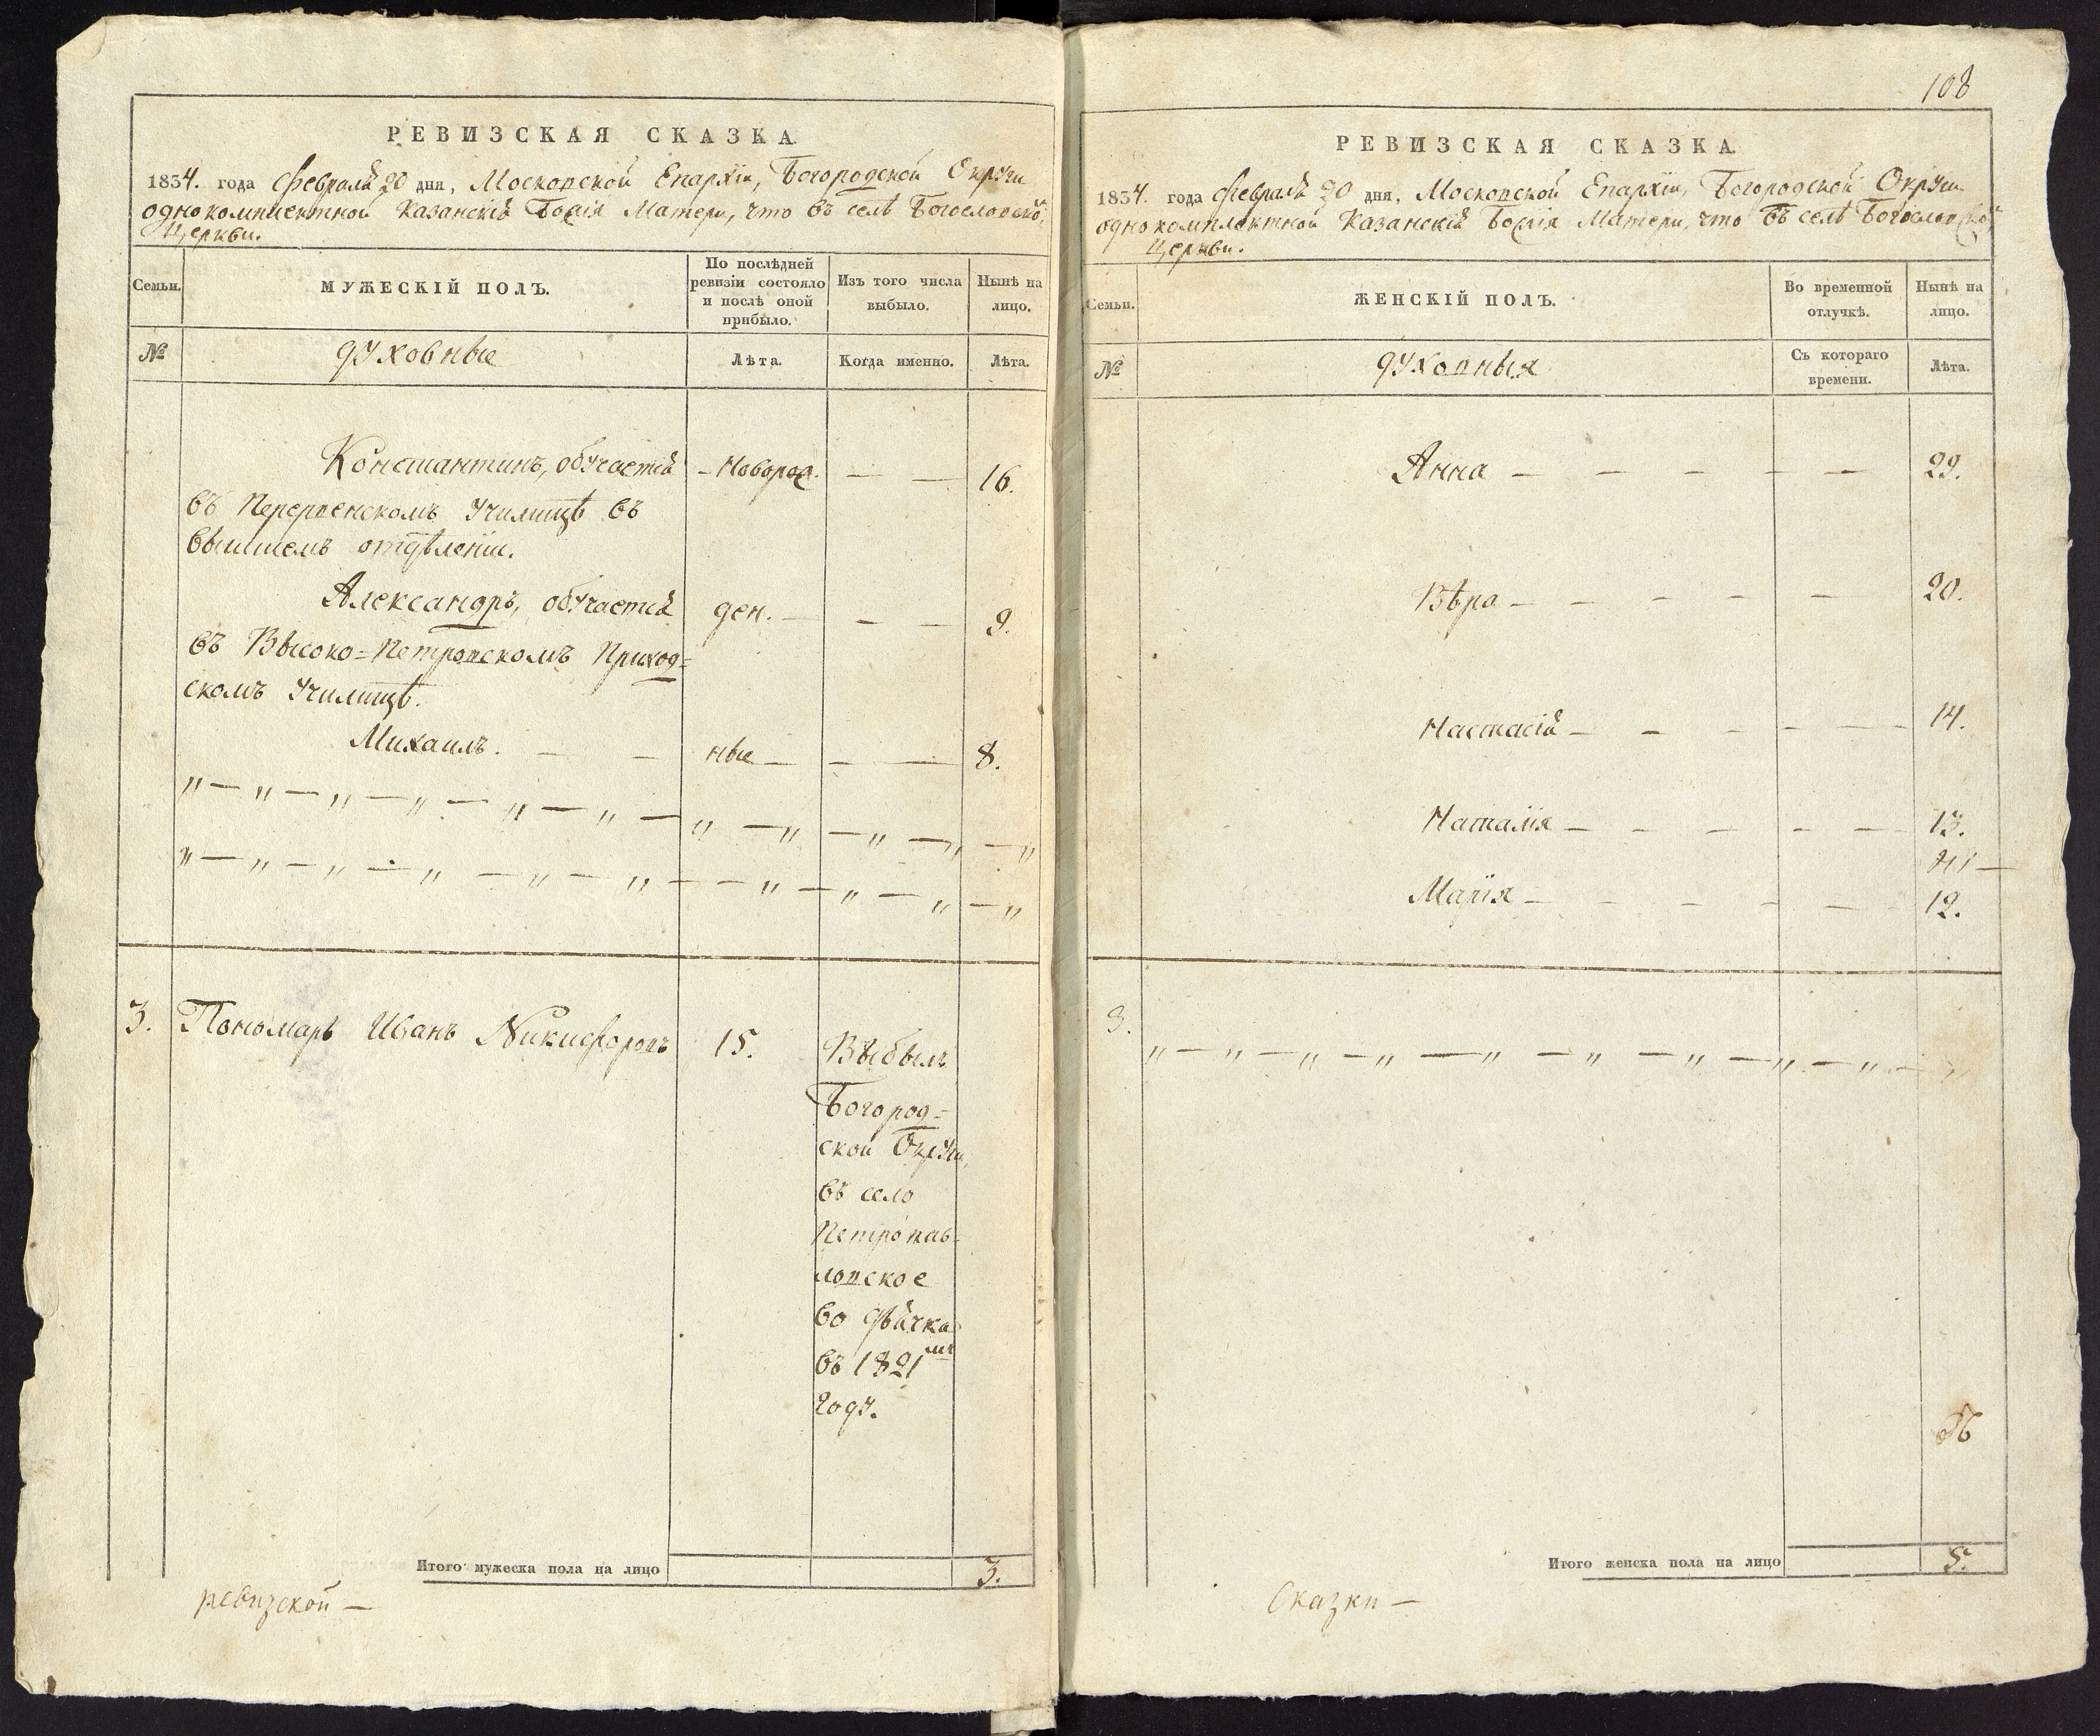 РЕВИЗСКАЯ СКАЗКА
1834. года Февраля 20 дня, Московской Епархіи, Богородской Округи
однокомплектной Казанскія Божія Матери, что въ селѣ Богословской,
Церкви.
Семьи.
МУЖЕСКІЙ ПОЛЪ.
По послѣдней
ревизіи состояло
и послѣ оной
прибыло.
Изъ того числа
выбыло.
Нынѣ на
лицо.
№
духовные
Лѣта.
Когда именно.
Лѣта.
Константинъ, обучается — Новорож. — — 16.
въ Перервенскомъ Училищѣ въ
высшемъ отдѣленіи.
Александръ, обучается ден. — — — 9.
въ Высоко=Петровскомъ Приход=
скомъ Училищѣ.
Михаилъ. — — ные — — — 8.
„ — „ — „ — „ — „ — „ — „ — „ — „ — „ — „
„ — „ — „ — „ — „ — „ — — „ — „ — „ — „
3. Пономарь Иванъ Никифоровъ 15. Выбылъ
Богород=
ской Округи,
въ село
Петропав=
ловское
во дьячка
въ 1821мъ
году.
Итого мужеска пола на лицо 3.
ревизской —
108
РЕВИЗСКАЯ СКАЗКА
1834. года Февраля 20 дня, Московской Епархіи, Богородской Округи
однокомплектной Казанскія Божія Матери, что въ селѣ Богословской
Церкви.
Семьи.
ЖЕНСКІЙ ПОЛЪ.
Во временной
отлучкѣ.
Нынѣ на
лицо.
№
духовныя
Съ котораго
времени.
Лѣта.
Анна — — — — — 29.
Вѣра — — — — — 20.
Настасія — — — — — 14.
Наталія — — — — — 13.
Марія — — — — — 12.
3.
„ — „ — „ — „ — „ — „ — „ — „ — „ — „
Итого женска пола на лицо 5.
Сказки —